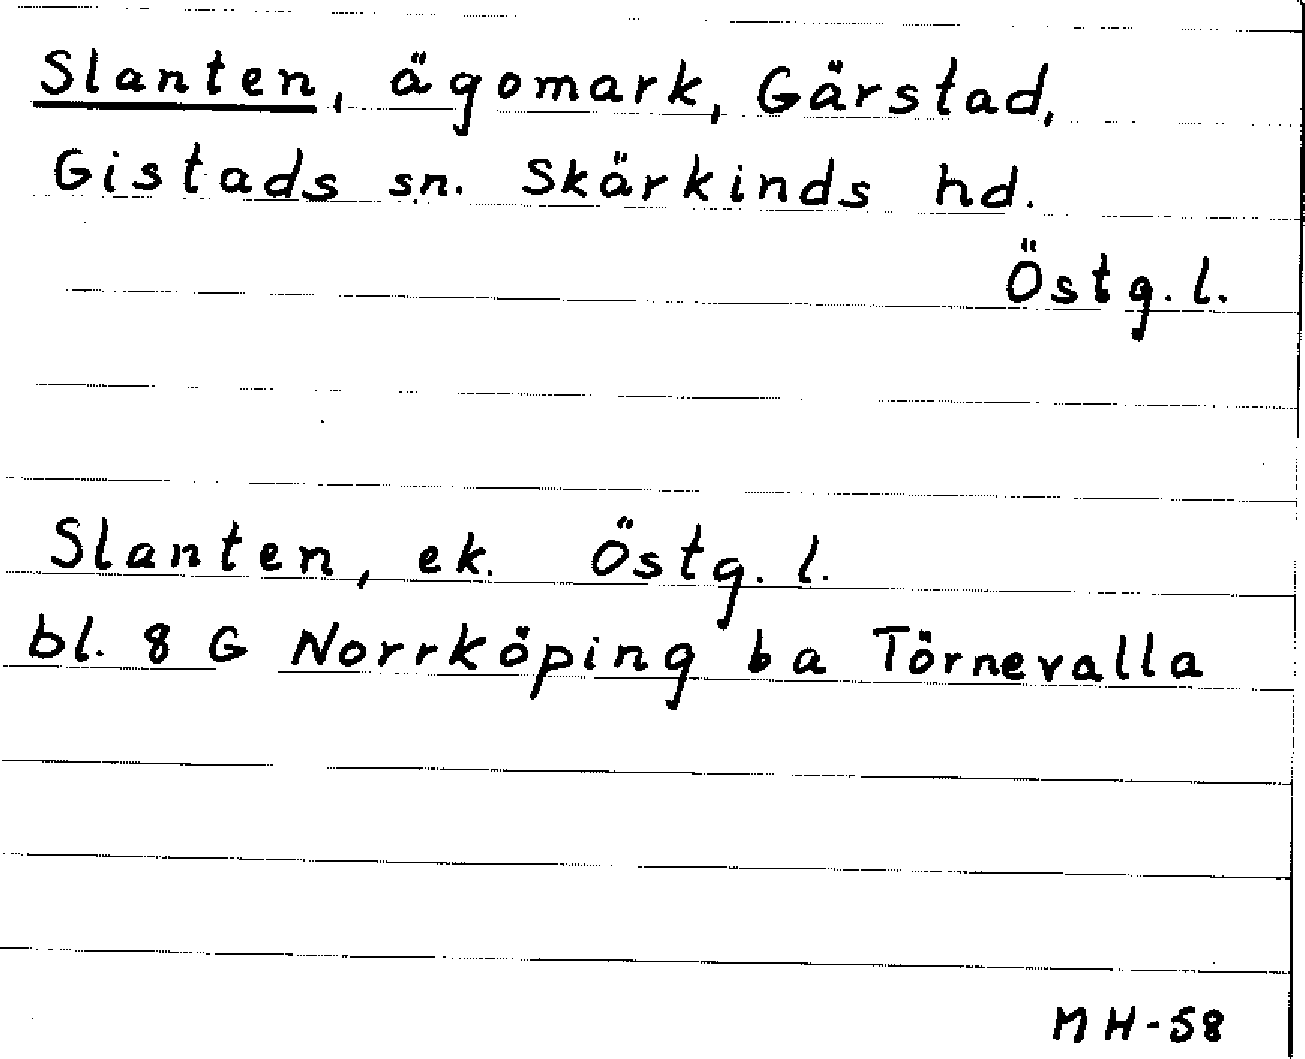 Slanten, ägomark, Gärstad,
Gistads sn. Skärkinds hd.
Östg. l.
Slanten, ek. Östg. l.
bl. 8 G Norrköping ba Törnevalla
MH-58